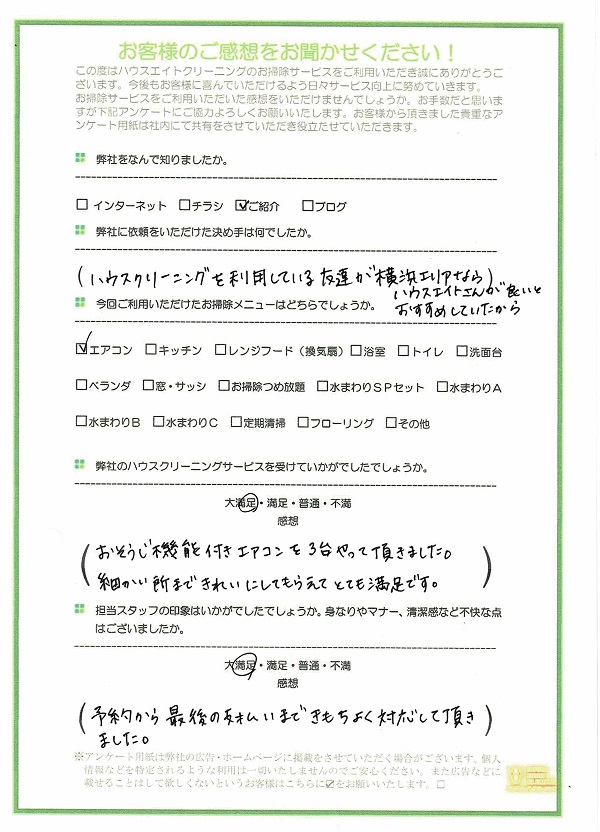 お客様のご感想をお聞かせください！
この度はハウスエイトクリーニングのお掃除サービスをご利用いただき誠にありがとうご
ざいます。今後もお客様に喜んでいただけるよう日々サービス向上に努めていきます。
お掃除サービスをご利用いただいた感想をいただけませんでしょうか。お手数だと思いま
すが下記アンケートにご協力よろしくお願いいたします。お客様から頂きました貴重なア
ンケート用紙は社内にて共有をさせていただき役立たせていただきます。
弊社をなんで知りましたか。
□ インターネット □チラシ ☑ご紹介 □ブログ
弊社に依頼をいただけた決め手は何でしたか。
(ハウスクリーニングを利用している友達が横浜エリアなら)
ハウスエイトさんが良いと
おすすめしていたから
今回ご利用いただけたお掃除メニューはどちらでしょうか。
☑エアコン □キッチン □レンジフード（換気扇）□浴室 □トイレ □洗面台
□ベランダ □窓・サッシ □お掃除つめ放題 □水まわりＳＰセット □水まわりＡ
□水まわりＢ □水まわりＣ □定期清掃 □フローリング □その他
弊社のハウスクリーニングサービスを受けていかがでしたでしょうか。
大満足・満足・普通・不満
感想
(おそうじ機能付きエアコンを3台やって頂きました。
細かい所まできれいにしてもらえてとても満足です。)
担当スタッフの印象はいかがでしたでしょうか。身なりやマナー、清潔感など不快な点
はございましたか。
大満足・満足・普通・不満
感想
(予約から最後の支払いまできもちよく対応して頂き)
ました。
※アンケート用紙は弊社の広告・ホームページに掲載をさせていただく場合がございます。個人
情報などを特定されるような利用は一切いたしませんのでご安心ください。また広告などに
載せることはして欲しくないというお客様はこちらに☑をお願いいたします。□